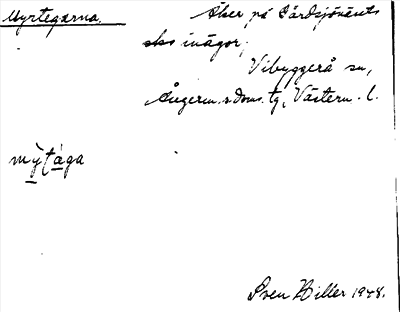 Myrtegarna. Åker på Gårdsjönäsets
ekos inägor,
Vibyggerå sn,
Ångerm. s. doms. tg, Västern. l.
mỳtága
Sven Hiller 1948.